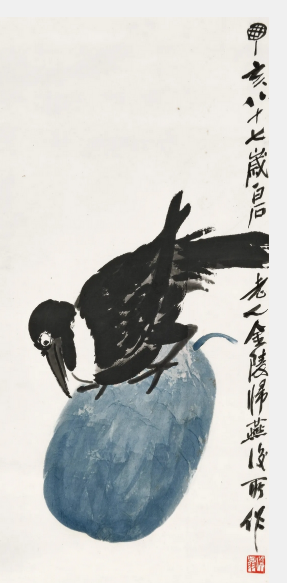 丁亥八十七歲白石老人金陵歸燕後所作